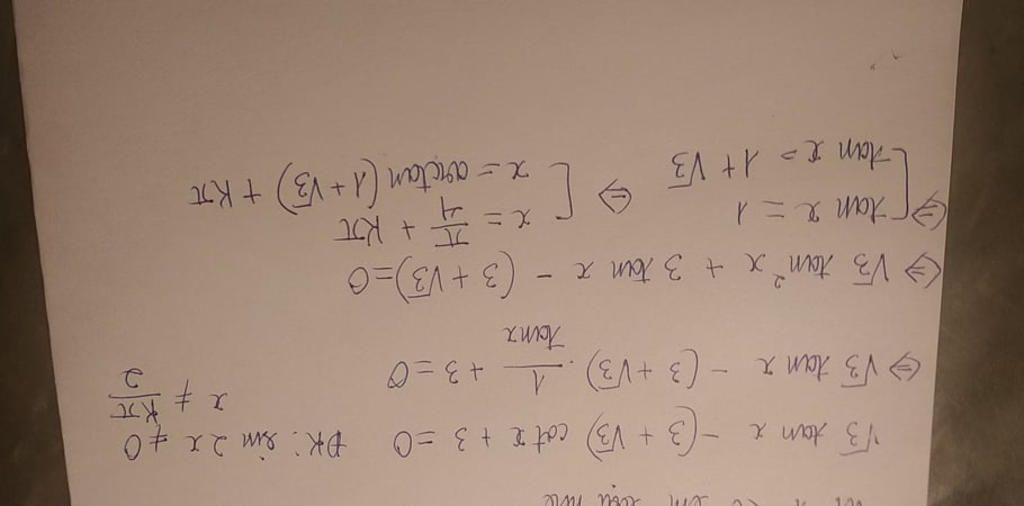 √3 tan x - (3 + √3) cot x + 3 = 0 ĐK: sin 2x ≠ 0
x ≠ kπ/2
⇔ √3 tan x - (3 + √3) . 1/tan x + 3 = 0
⇔ √3 tan² x + 3 tan x - (3 + √3) = 0
⇔ [ tan x = 1 ⇔ [ x = π/4 + kπ
tan x = 1 + √3 x = arctan (1 + √3) + kπ